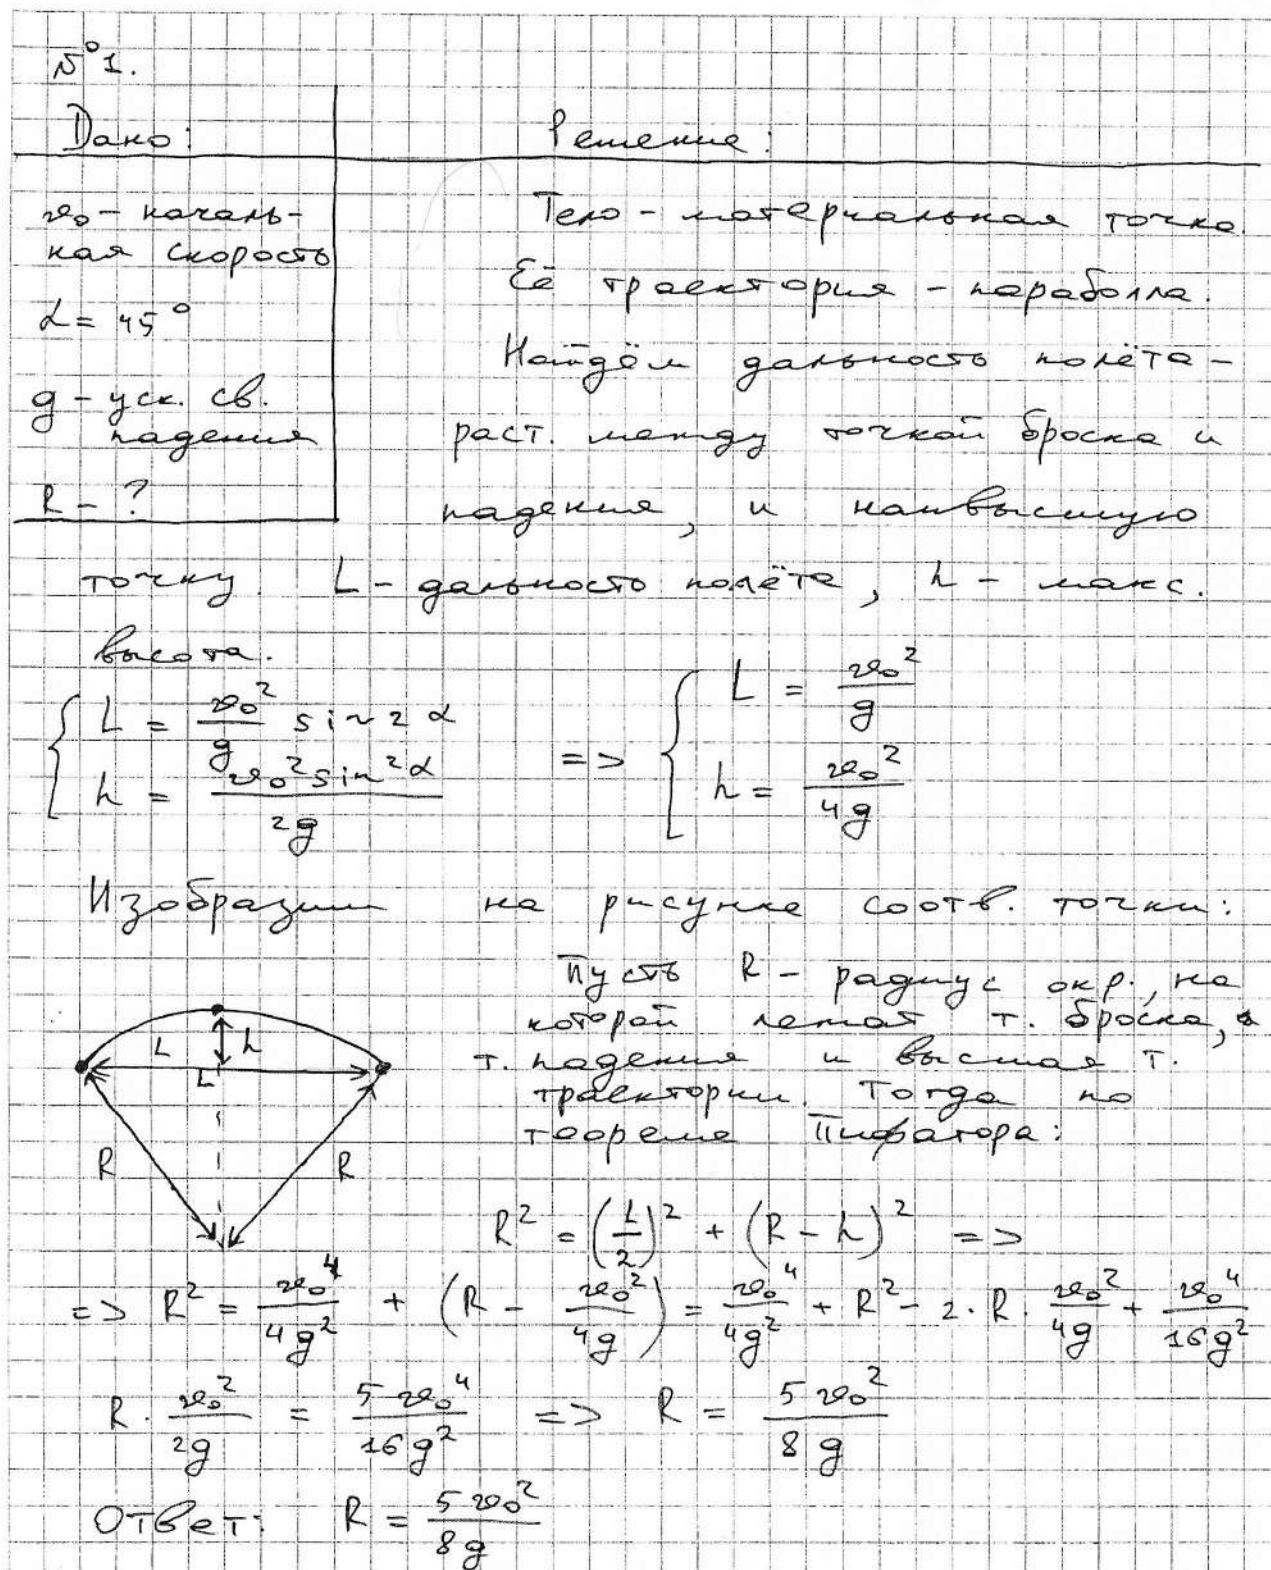 №1.
Дано:
Решение:
v₀ - началь-
ная скорость
α = 45°
g - уск. св.
падения
R - ?
Тело - материальная точка.
Её траектория - параболла.
Найдём дальность полёта -
раст. между точкой броска и
падения, и наивысшую
точку. L - дальность полёта, h - макс.
высота.
{ L = v₀²/g sin 2α
h = v₀² sin²α / 2g
=> { L = v₀²/g
h = v₀²/4g
Изобразим на рисунке соотв. точки:
Пусть R - радиус окр., на
которой лежат т. броска,
т. падения и высшая т.
траектории. Тогда по
теореме Пифагора:
L h
L
R R
R² = (L/2)² + (R - h)² =>
=> R² = v₀⁴/4g² + (R - v₀²/4g) = v₀⁴/4g² + R² - 2·R·v₀²/4g + v₀⁴/16g²
R · v₀²/2g = 5v₀⁴/16g² => R = 5v₀²/8g
Ответ: R = 5v₀²/8g